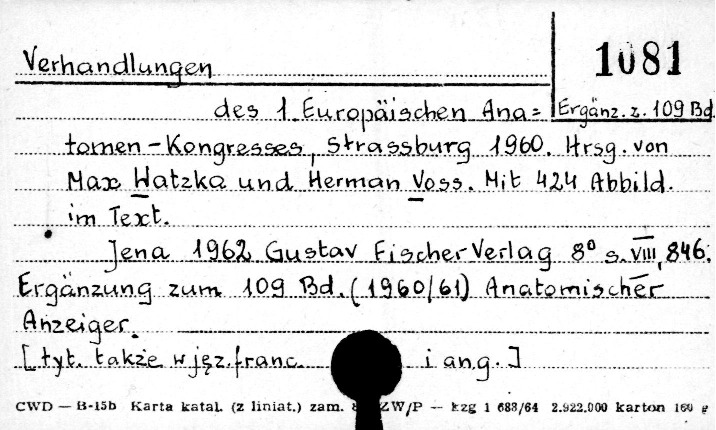 Verhandlungen
1081
des 1. Europäischen Ana=
Ergänz. z. 109 Bd.
tomen-Kongresses, Strassburg 1960. Hrsg. von
Max Watzka und Herman Voss. Mit 424 Abbild.
im Text.
Jena 1962 Gustav Fischer Verlag 8° s. VIII, 846.
Ergänzung zum 109 Bd. (1960/61) Anatomischer
Anzeiger.
[tyt. także w jęz. franc. i ang.]
CWD — B-15b Karta katal. (z liniat.) zam. ZW/P — kzg 1 688/64 2.922.000 karton 160 g